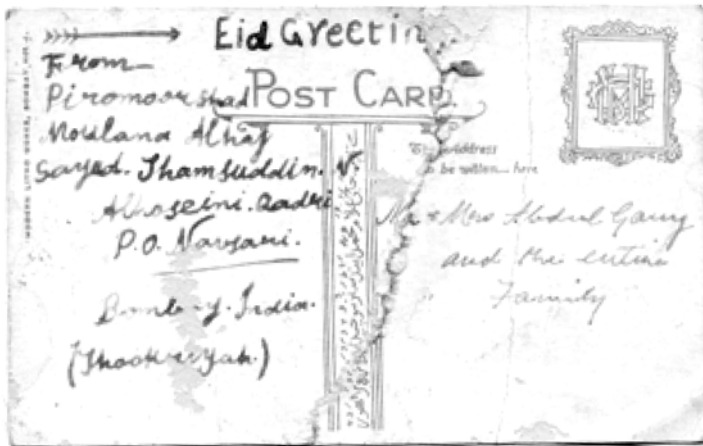 Eid Greetin
From—
Piromoorshad
Moulana Alhaj
Sayed. Shamsuddin. N
Alhoseini. Qadri
P.O. Navsari.
Bombay. India.
POST CARD.
The address
to be written here
Mr & Mrs Abdul Gany
and the entire
Family